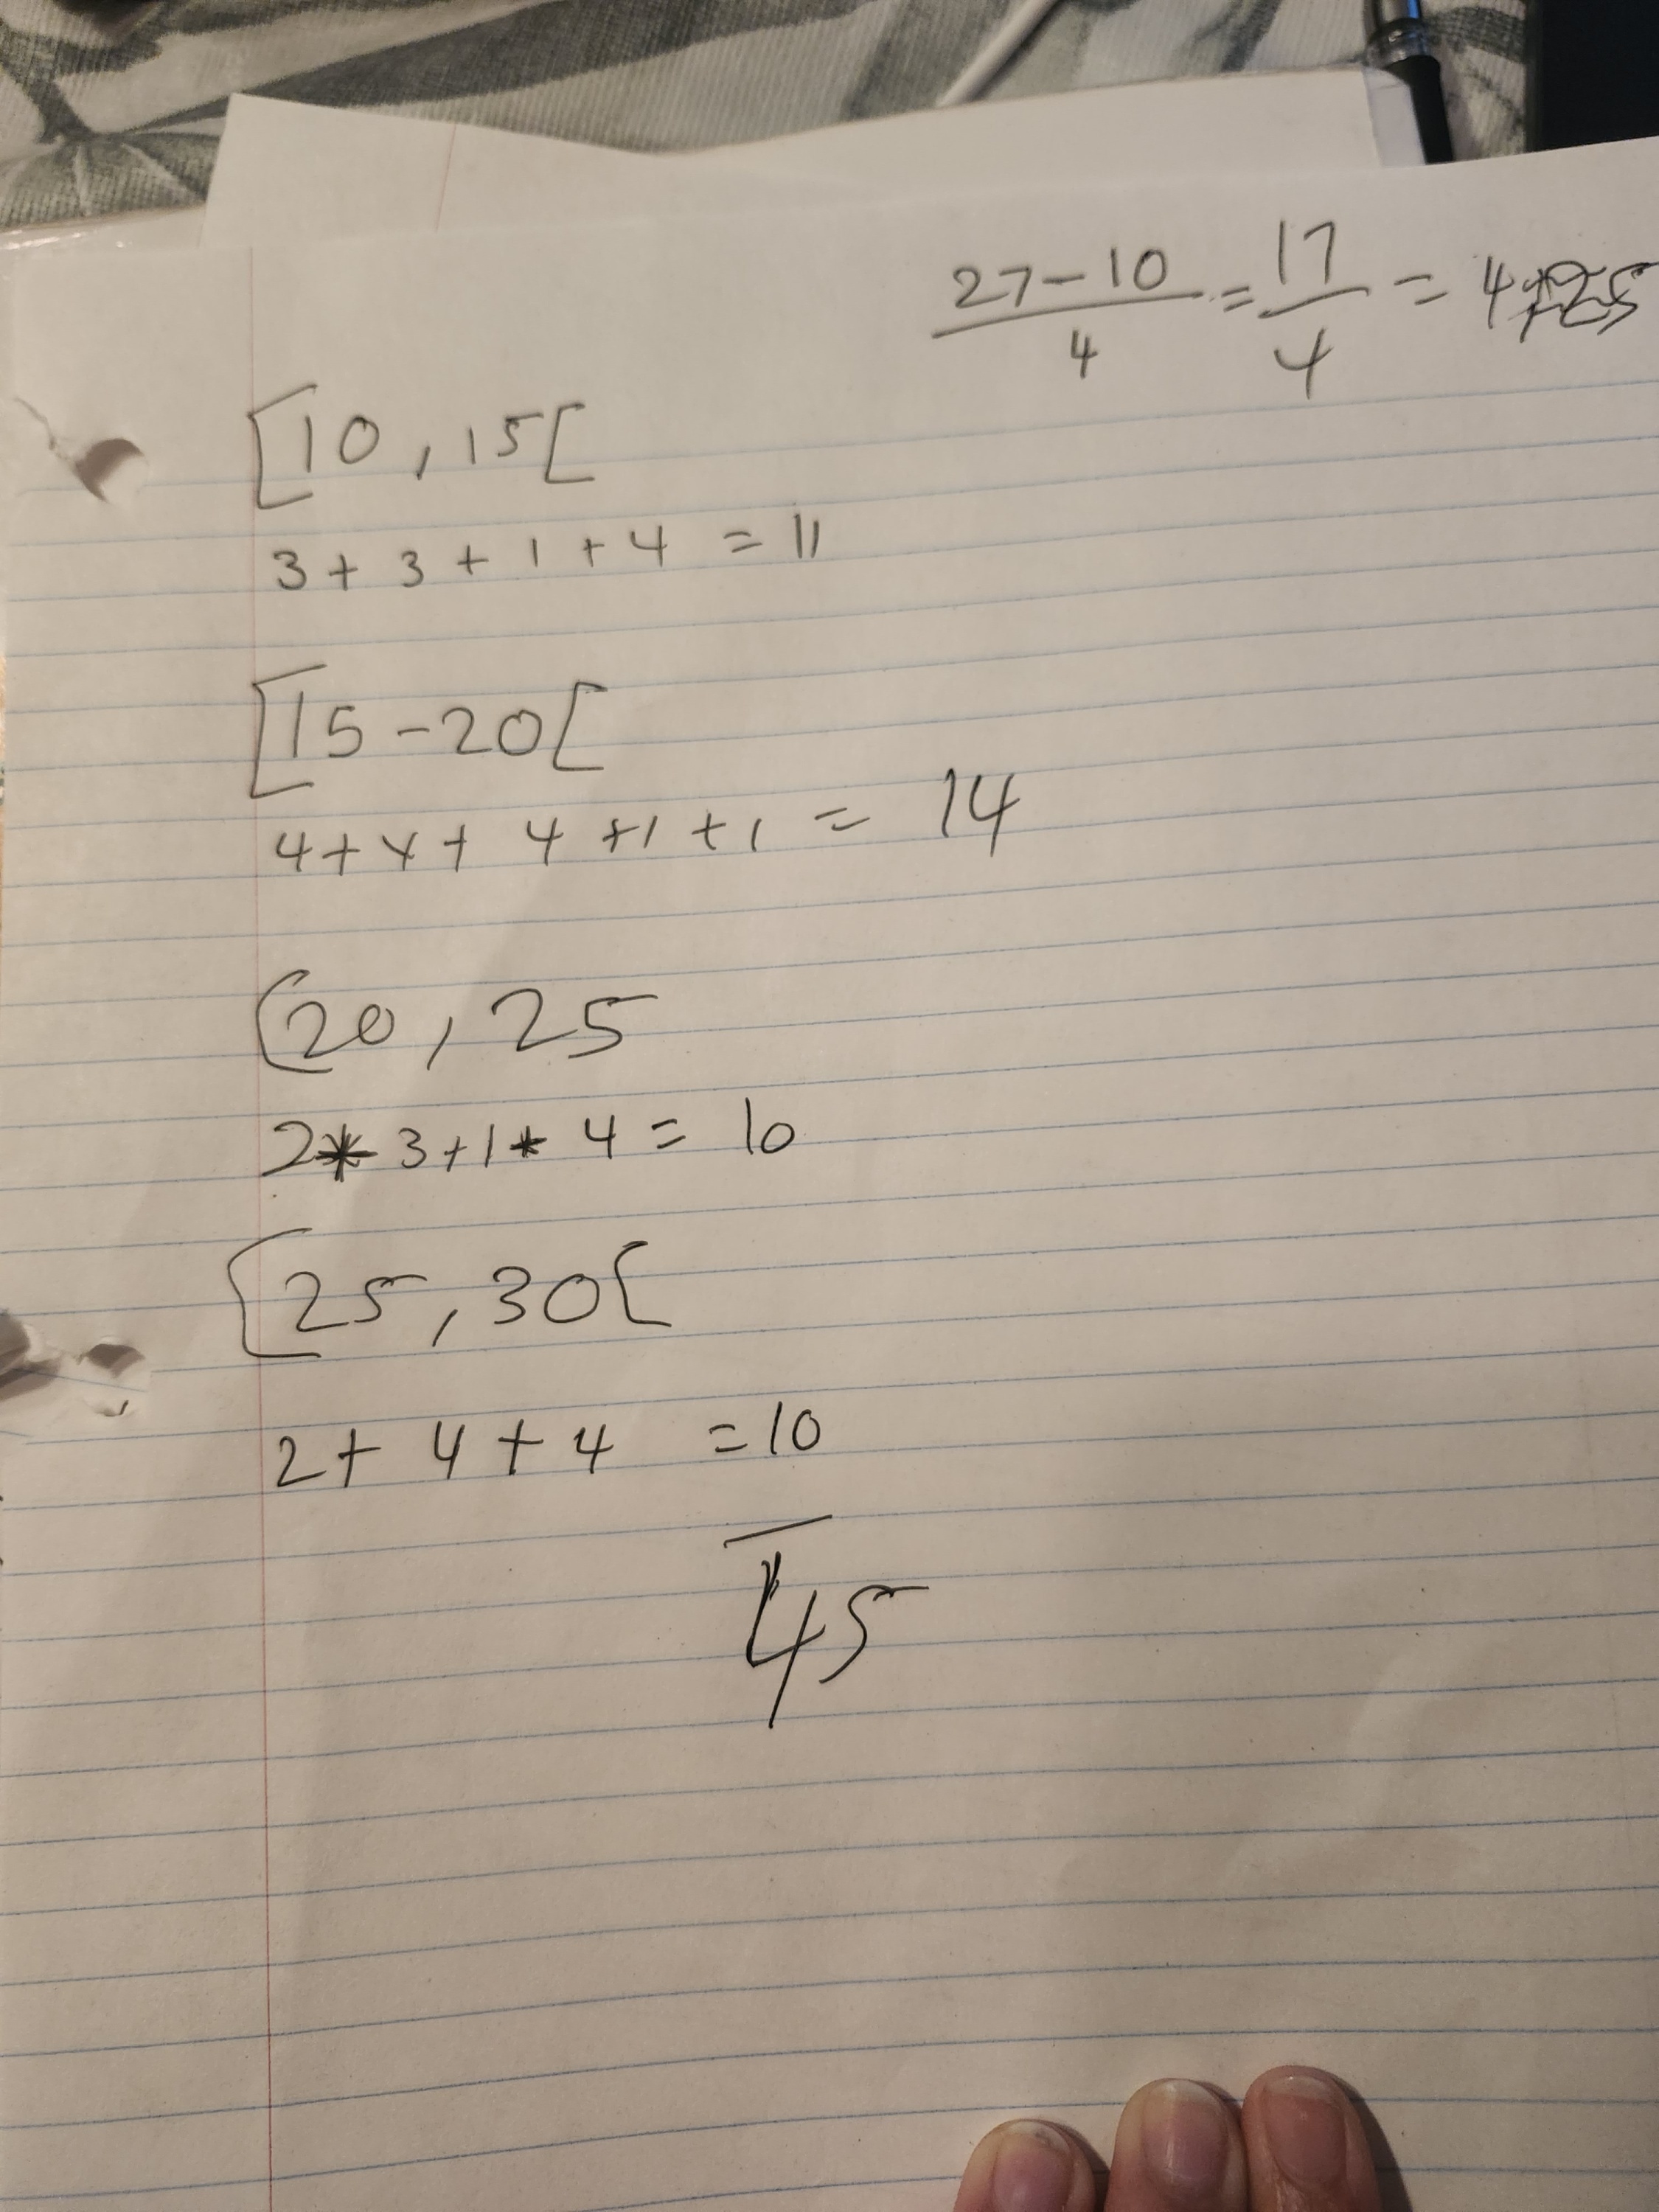 27-10/4 = 17/4 = 4,25
[10, 15[
3 + 3 + 1 + 4 = 11
[15-20[
4 + 4 + 4 + 1 + 1 = 14
[20, 25
2* 3 + 1* 4 = 10
[25, 30[
2 + 4 + 4 = 10
45